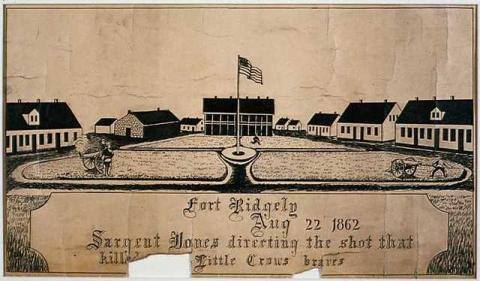 Fort Ridgely
Aug 22 1862
Sargent Jones directing the shot that
killed Little Crows braves